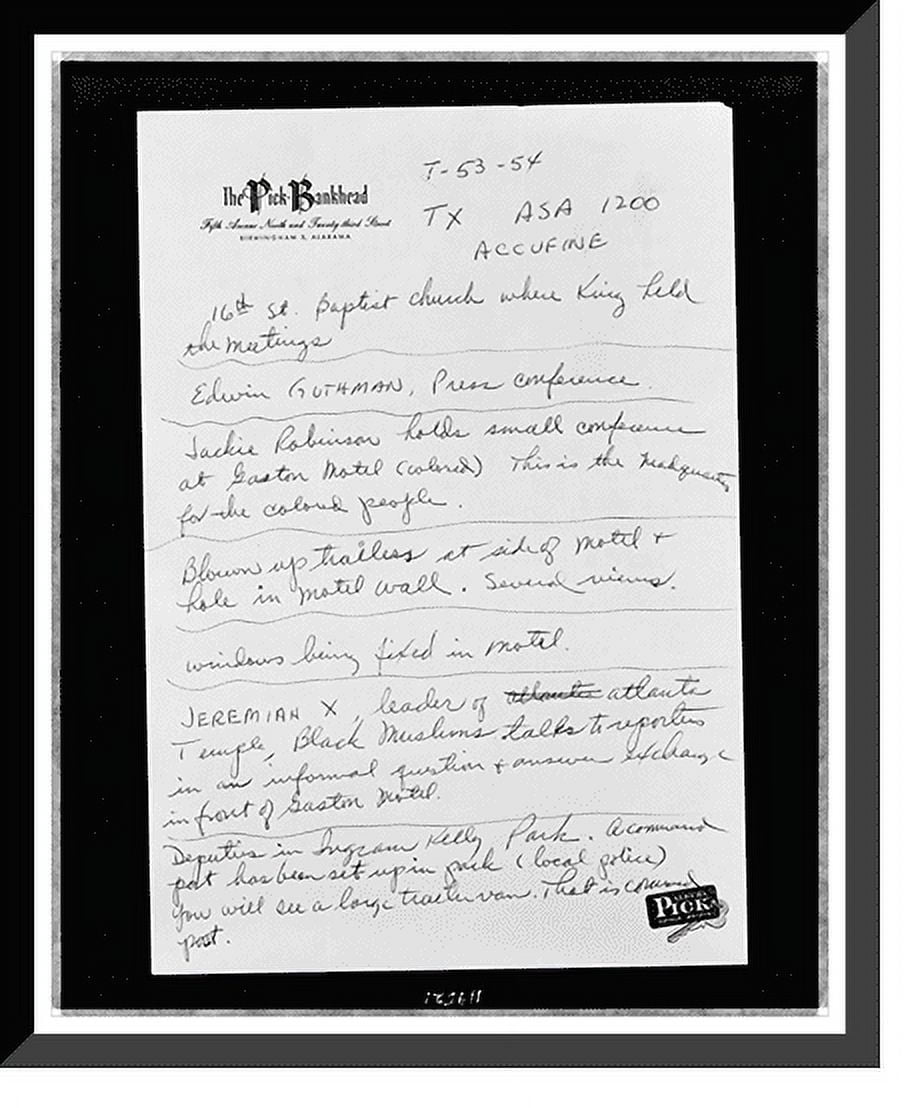 The Pick-Bankhead
Fifth Avenue North and Twenty-third Street
BIRMINGHAM 3, ALABAMA
T-53-54
TX ASA 1200
ACCUFINE
16th St. Baptist church where King held
the meetings
Edwin GUTHMAN, Press conference.
Jackie Robinson holds small conference
at Gaston Motel (colored) This is the headquarters
for the colored people.
Blown up trailers at side of motel +
hole in motel wall. Several views.
windows being fixed in motel.
JEREMIAH X, leader of atlanta
Temple, Black Muslims talks to reporters
in an informal question + answer exchange
in front of Gaston Motel.
Deputies in Ingram Kelly Park. A command
post has been set up in park (local police)
You will see a large trailer van. That is command
post.
PICK